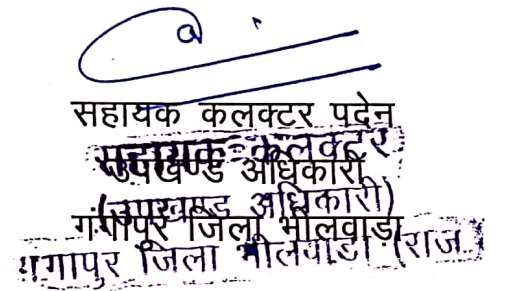 सहायक कलक्टर पदेन
सहायक कलक्टर
उपखण्ड अधिकारी
(उपखण्ड अधिकारी)
गंगापुर जिला भीलवाड़ा
गंगापुर जिला भीलवाडा (राज.)